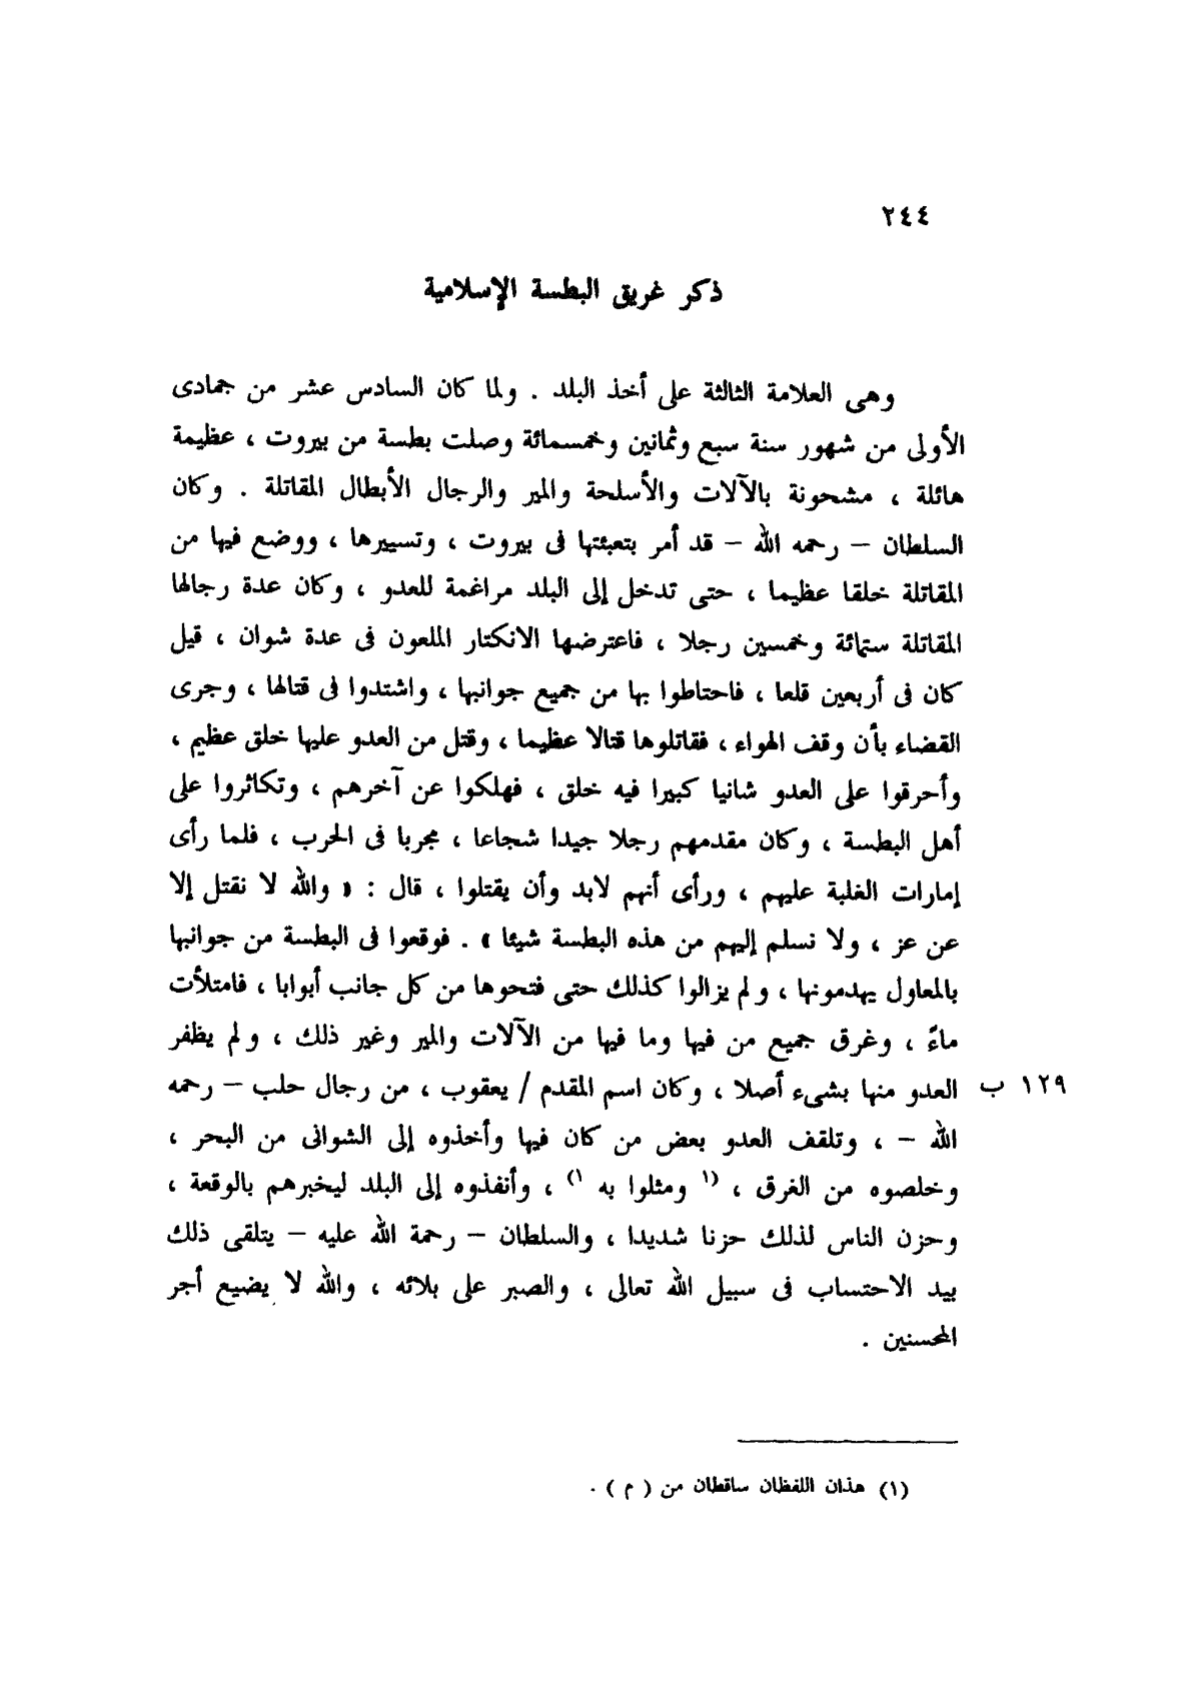 ٢٤٤
ذكر غريق البطسة الإسلامية
وهى العلامة الثالثة على أخذ البلد . ولما كان السادس عشر من جمادى
الأولى من شهور سنة سبع وثمانين وخمسمائة وصلت بطسة من بيروت ، عظيمة
هائلة ، مشحونة بالآلات والأسلحة والمير والرجال الأبطال المقاتلة . وكان
السلطان – رحمه الله – قد أمر بتعبئتها فى بيروت ، وتسييرها ، ووضع فيها من
المقاتلة خلقا عظيما ، حتى تدخل إلى البلد مراغمة للعدو ، وكان عدة رجالها
المقاتلة ستمائة وخمسين رجلا ، فاعترضها الانكتار الملعون فى عدة شوان ، قيل
كان فى أربعين قلعا ، فاحتاطوا بها من جميع جوانبها ، واشتدوا فى قتالها ، وجرى
القضاء بأن وقف الهواء ، فقاتلوها قتالا عظيما ، وقتل من العدو عليها خلق عظيم ،
وأحرقوا على العدو شانيا كبيرا فيه خلق ، فهلكوا عن آخرهم ، وتكاثروا على
أهل البطسة ، وكان مقدمهم رجلا جيدا شجاعا ، مجربا فى الحرب ، فلما رأى
إمارات الغلبة عليهم ، ورأى أنهم لابد وأن يقتلوا ، قال : « والله لا نقتل إلا
عن عز ، ولا نسلم إليهم من هذه البطسة شيئا » . فوقعوا فى البطسة من جوانبها
بالمعاول يهدمونها ، ولم يزالوا كذلك حتى فتحوها من كل جانب أبوابا ، فامتلأت
ماءً ، وغرق جميع من فيها وما فيها من الآلات والمير وغير ذلك ، ولم يظفر
العدو منها بشىء أصلا ، وكان اسم المقدم / يعقوب ، من رجال حلب – رحمه ١٢٩ ب
الله – ، وتلقف العدو بعض من كان فيها وأخذوه إلى الشوانى من البحر ،
وخلصوه من الغرق ، (١ ومثلوا به ١) ، وأنفذوه إلى البلد ليخبرهم بالوقعة ،
وحزن الناس لذلك حزنا شديدا ، والسلطان – رحمة الله عليه – يتلقى ذلك
بيد الاحتساب فى سبيل الله تعالى ، والصبر على بلائه ، والله لا يضيع أجر
المحسنين .
(١) هذان اللفظان ساقطان من ( م ) .